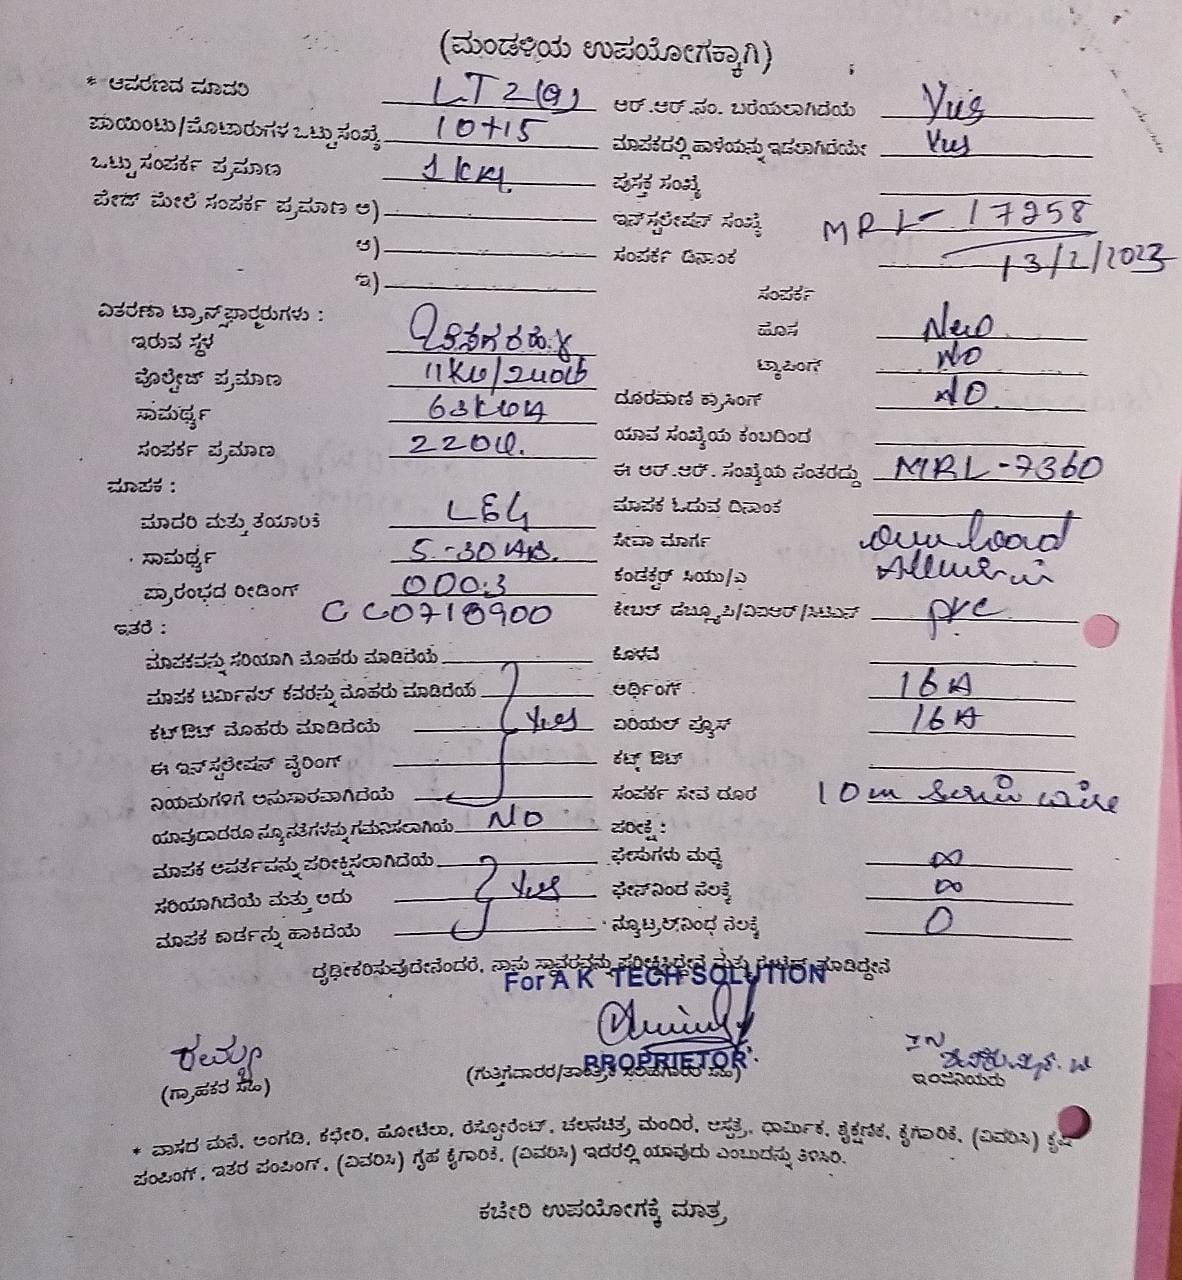 (ಮಂಡಳಿಯ ಉಪಯೋಗಕ್ಕಾಗಿ)
* ಆವರಣದ ಮಾದರಿ LT 2(a) ಆರ್.ಆರ್.ನಂ. ಬರೆಯಲಾಗಿದೆಯೆ Yes
ಪಾಯಿಂಟು/ಮೋಟಾರುಗಳ ಒಟ್ಟು ಸಂಖ್ಯೆ 10+15 ಮಾಪಕದಲ್ಲಿ ಹಾಳೆಯನ್ನು ಇಡಲಾಗಿದೆಯೇ Yes
ಒಟ್ಟು ಸಂಪರ್ಕ ಪ್ರಮಾಣ 1 KW. ಪುಸ್ತಕ ಸಂಖ್ಯೆ
ಪೇಡ್ ಮೇಲೆ ಸಂಪರ್ಕ ಪ್ರಮಾಣ ಅ) ಇನ್‌ಸ್ಟಲೇಷನ್ ಸಂಖ್ಯೆ MRL- 17258
ಆ) ಸಂಪರ್ಕ ದಿನಾಂಕ 13/2/2023
ಇ)
ಸಂಪರ್ಕ
ವಿತರಣಾ ಟ್ರಾನ್ಸ್‌ಫಾರ್ಮರುಗಳು :
ಇರುವ ಸ್ಥಳ ಹೊಸ New
ವೋಲ್ಟೇಜ್ ಪ್ರಮಾಣ 11KV/240V ಟ್ಯಾಪಿಂಗ್ NO
ಸಾಮರ್ಥ್ಯ 63KVA ದೂರವಾಣಿ ಕ್ರಾಸಿಂಗ್ NO.
ಸಂಪರ್ಕ ಪ್ರಮಾಣ 220V. ಯಾವ ಸಂಖ್ಯೆಯ ಕಂಬದಿಂದ
ಈ ಆರ್.ಆರ್. ಸಂಖ್ಯೆಯ ನಂತರದ್ದು MRL-7360
ಮಾಪಕ : ಮಾಪಕ ಓದುವ ದಿನಾಂಕ
ಮಾದರಿ ಮತ್ತು ತಯಾರಿಕೆ L&G ಸೇವಾ ಮಾರ್ಗ
ಸಾಮರ್ಥ್ಯ 5-30 ಕಂಡಕ್ಟರ್ ಸಿಯು/ಎ
ಪ್ರಾರಂಭದ ರೀಡಿಂಗ್ 000.3 ಕೇಬಲ್ ಡಬ್ಲ್ಯೂಪಿ/ವಿಐಆರ್/ಸಿಟಿಎಸ್ pvc
CC0718900
ಇತರೆ :
ಮಾಪಕವನ್ನು ಸರಿಯಾಗಿ ಮೊಹರು ಮಾಡಿದೆಯೆ ಕೊಳವೆ
ಮಾಪಕ ಟರ್ಮಿನಲ್ ಕವರನ್ನು ಮೊಹರು ಮಾಡಿದೆಯ ಅರ್ಥಿಂಗ್ 16 A
ಕಟ್‌ಔಟ್ ಮೊಹರು ಮಾಡಿದೆಯೆ Yes ಏರಿಯಲ್ ಫ್ಯೂಸ್ 16 A
ಈ ಇನ್‌ಸ್ಟಲೇಷನ್ ವೈರಿಂಗ್ ಕಟ್ಸ್ ಔಟ್
ನಿಯಮಗಳಿಗೆ ಅನುಸಾರವಾಗಿದೆಯೆ ಸಂಪರ್ಕ ಸೇವೆ ದೂರ 10m service wire
ಯಾವುದಾದರೂ ನ್ಯೂನತೆಗಳನ್ನು ಗಮನಿಸಲಾಗಿಯೆ NO ಪರೀಕ್ಷೆ :
ಮಾಪಕ ಆವರ್ತವನ್ನು ಪರೀಕ್ಷಿಸಲಾಗಿದೆಯೆ ಫೇಸುಗಳು ಮಧ್ಯೆ ∞
ಸರಿಯಾಗಿದೆಯೆ ಮತ್ತು ಅದು Yes ಫೇಸ್‌ನಿಂದ ನೆಲಕ್ಕೆ ∞
ಮಾಪಕ ಕಾರ್ಡನ್ನು ಹಾಕಿದೆಯೆ ನ್ಯೂಟ್ರಲ್‌ನಿಂಧ ನೆಲಕ್ಕೆ 0
ದೃಢೀಕರಿಸುವುದೇನೆಂದರೆ, ನಾನು ಸ್ಥಾವರವನ್ನು ಪರೀಕ್ಷಿಸಿದ್ದೇನೆ ಮತ್ತು ಮಾಡಿದ್ದೇನೆ
For A K TECH SOLUTION
PROPRIETOR
(ಗ್ರಾಹಕರ ಸಹಿ) (ಗುತ್ತಿಗೆದಾರರ/ ಸಹಿ) ಇಂಜಿನಿಯರು
* ವಾಸದ ಮನೆ, ಅಂಗಡಿ, ಕಛೇರಿ, ಹೋಟೆಲು, ರೆಸ್ಟೋರೆಂಟ್, ಚಲನಚಿತ್ರ ಮಂದಿರ, ಆಸ್ಪತ್ರೆ, ಧಾರ್ಮಿಕ, ಶೈಕ್ಷಣಿಕ, ಕೈಗಾರಿಕೆ, (ವಿವರಿಸಿ) ಕೃಷಿ
ಪಂಪಿಂಗ್, ಇತರ ಪಂಪಿಂಗ್, (ವಿವರಿಸಿ) ಗೃಹ ಕೈಗಾರಿಕೆ, (ವಿವರಿಸಿ) ಇದರಲ್ಲಿ ಯಾವುದು ಎಂಬುದನ್ನು ತಿಳಿಸಿರಿ.
ಕಚೇರಿ ಉಪಯೋಗಕ್ಕೆ ಮಾತ್ರ